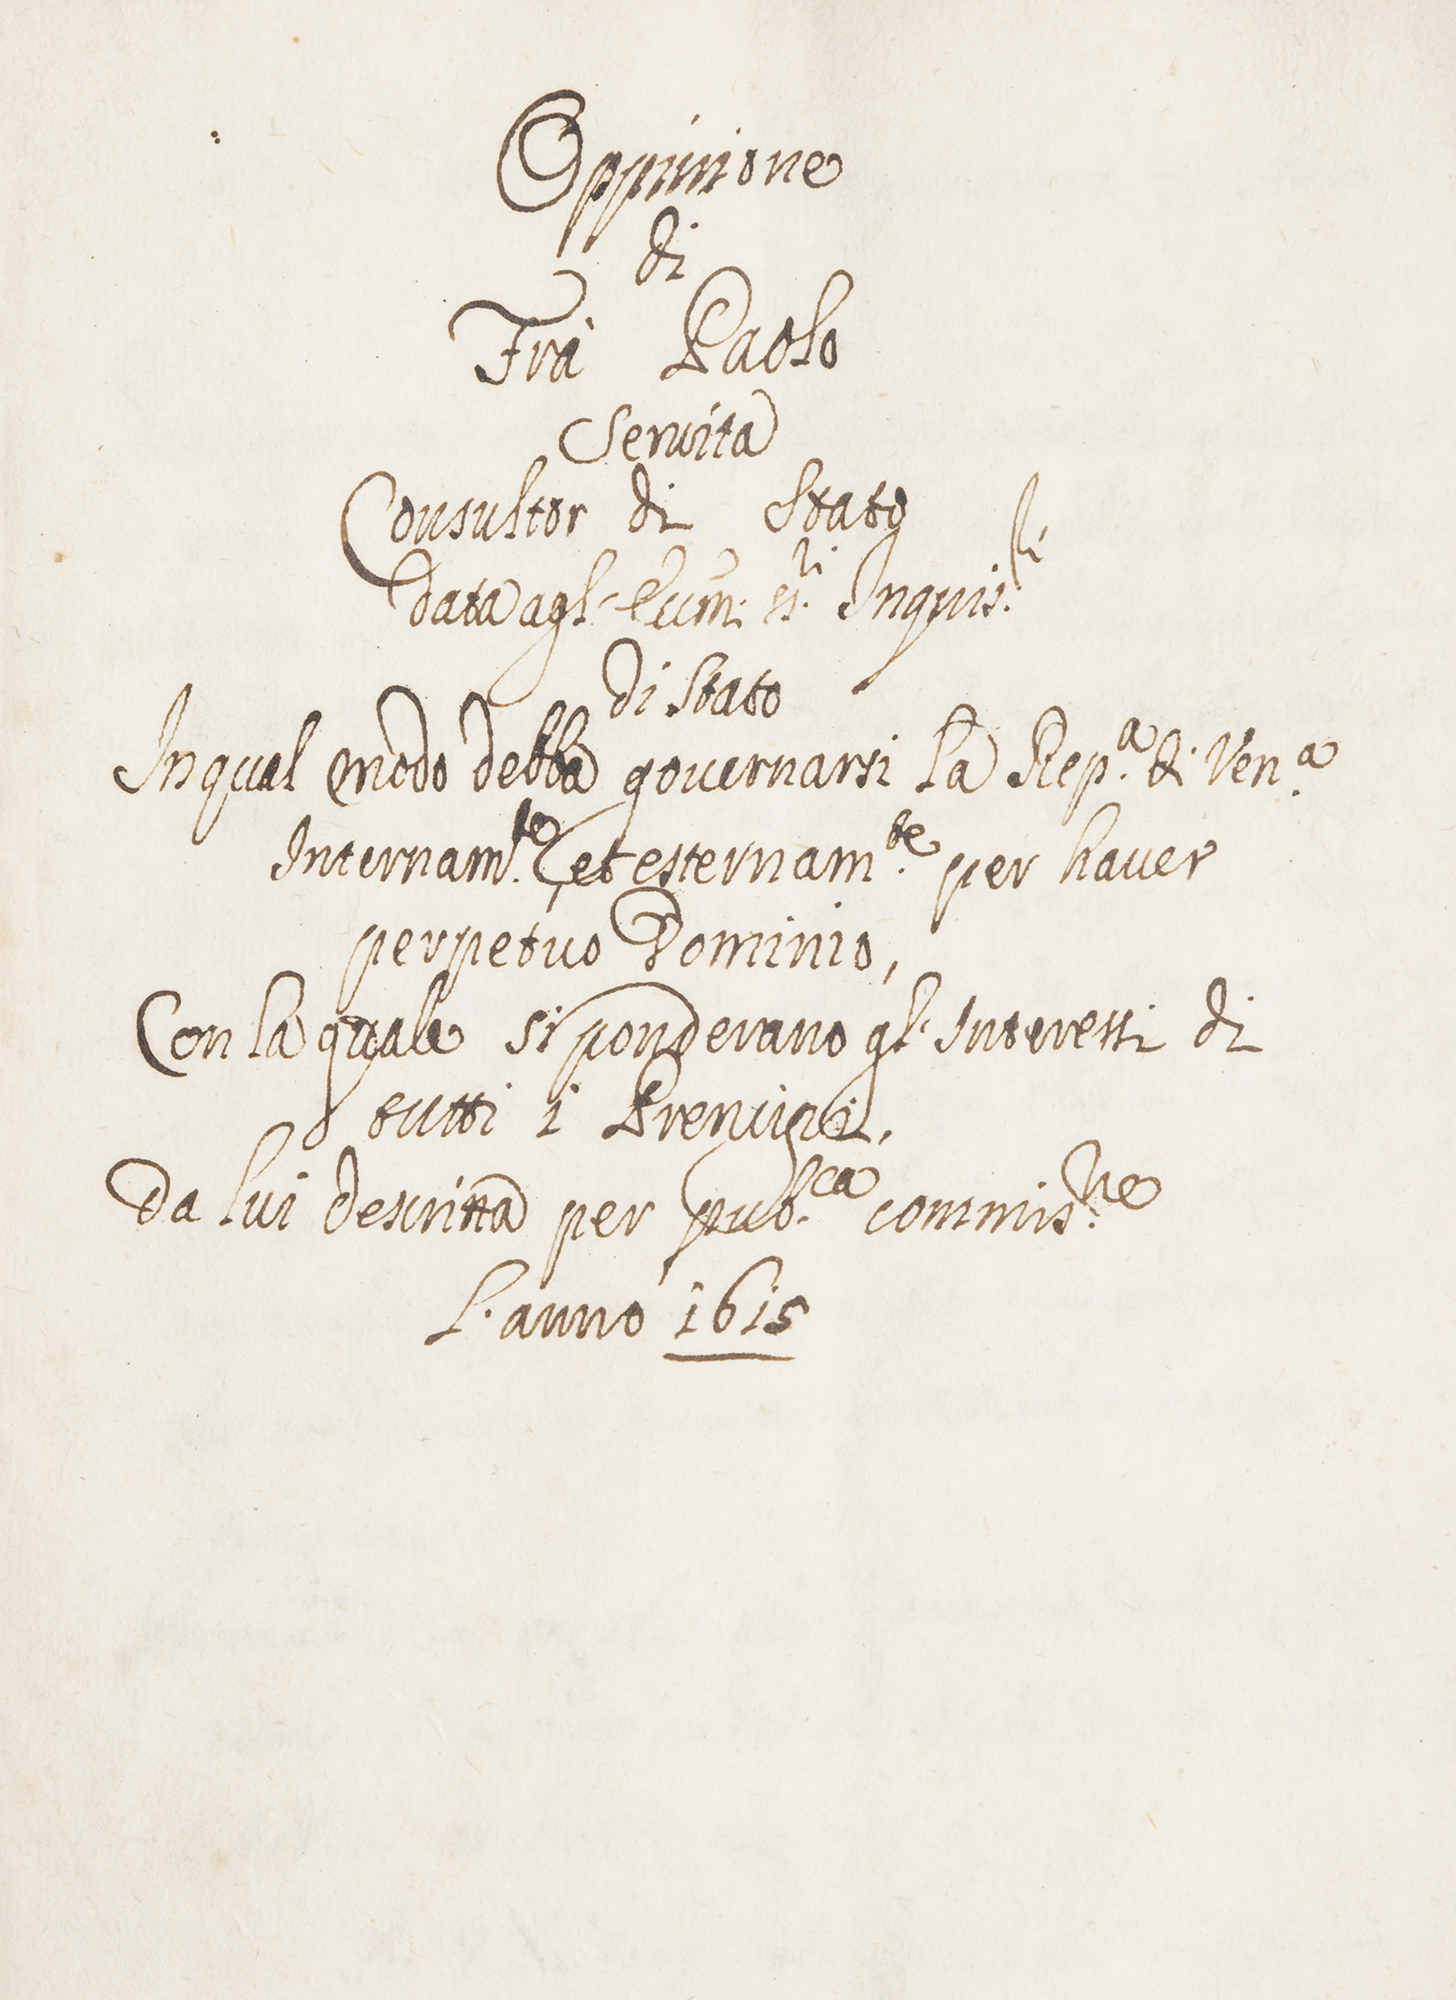 Oppinione
di
Frà Paolo
Servita
Consultor di Stato
data agl'
Inquis.ri
di Stato
In qual modo debba governarsi la Rep.a di Ven.a
Internam.te, et esternam.te per haver
perpetuo Dominio,
Con la quale si ponderano gl' Interessi di
tutti i Prencipi,
da lui descritta per pub.ca commis.ne
L'anno 1615